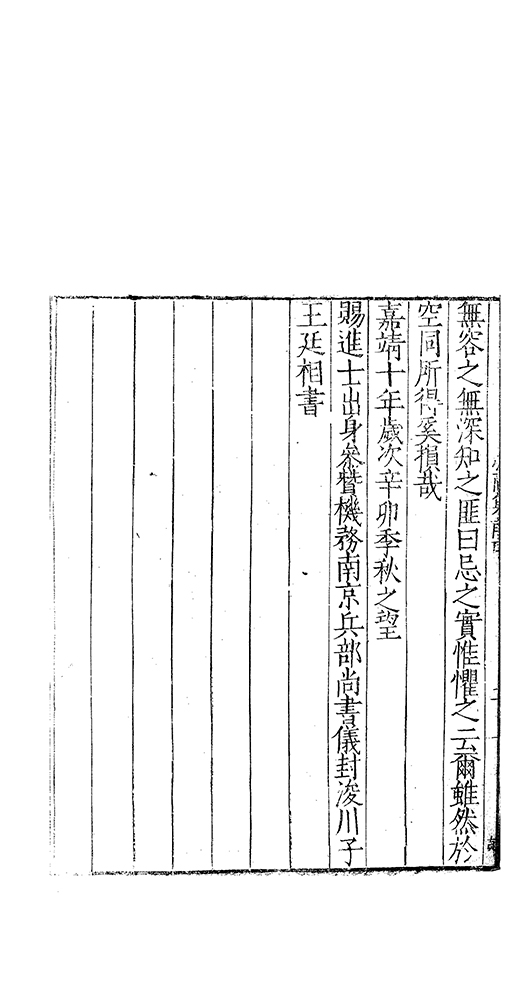 無容之無深知之匪曰忌之實惟懼之云爾雖然於
空同所得奚損哉
嘉靖十年歲次辛卯季秋之望
賜進士出身叅贊機務南京兵部尚書儀封浚川子
王廷相書